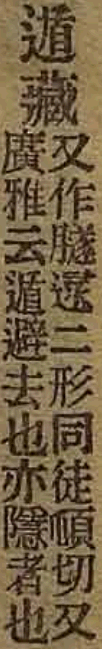 遁藏
又作遯二形同徒頓切又
廣雅云遁避去也亦隱者也